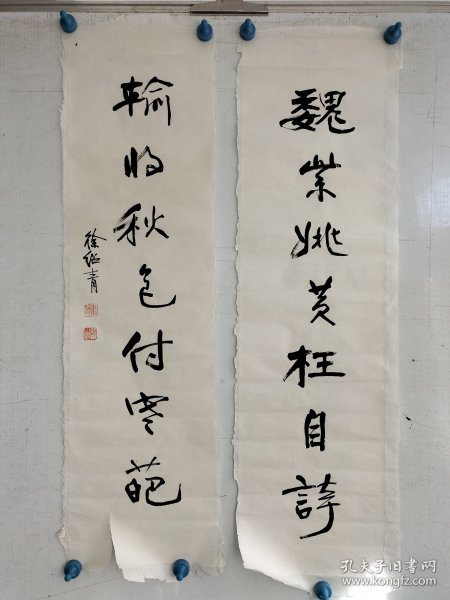 魏紫姚黄枉自誇
輸將秋色付寒葩
徐紹青
孔夫子旧书网
www.kongfz.com